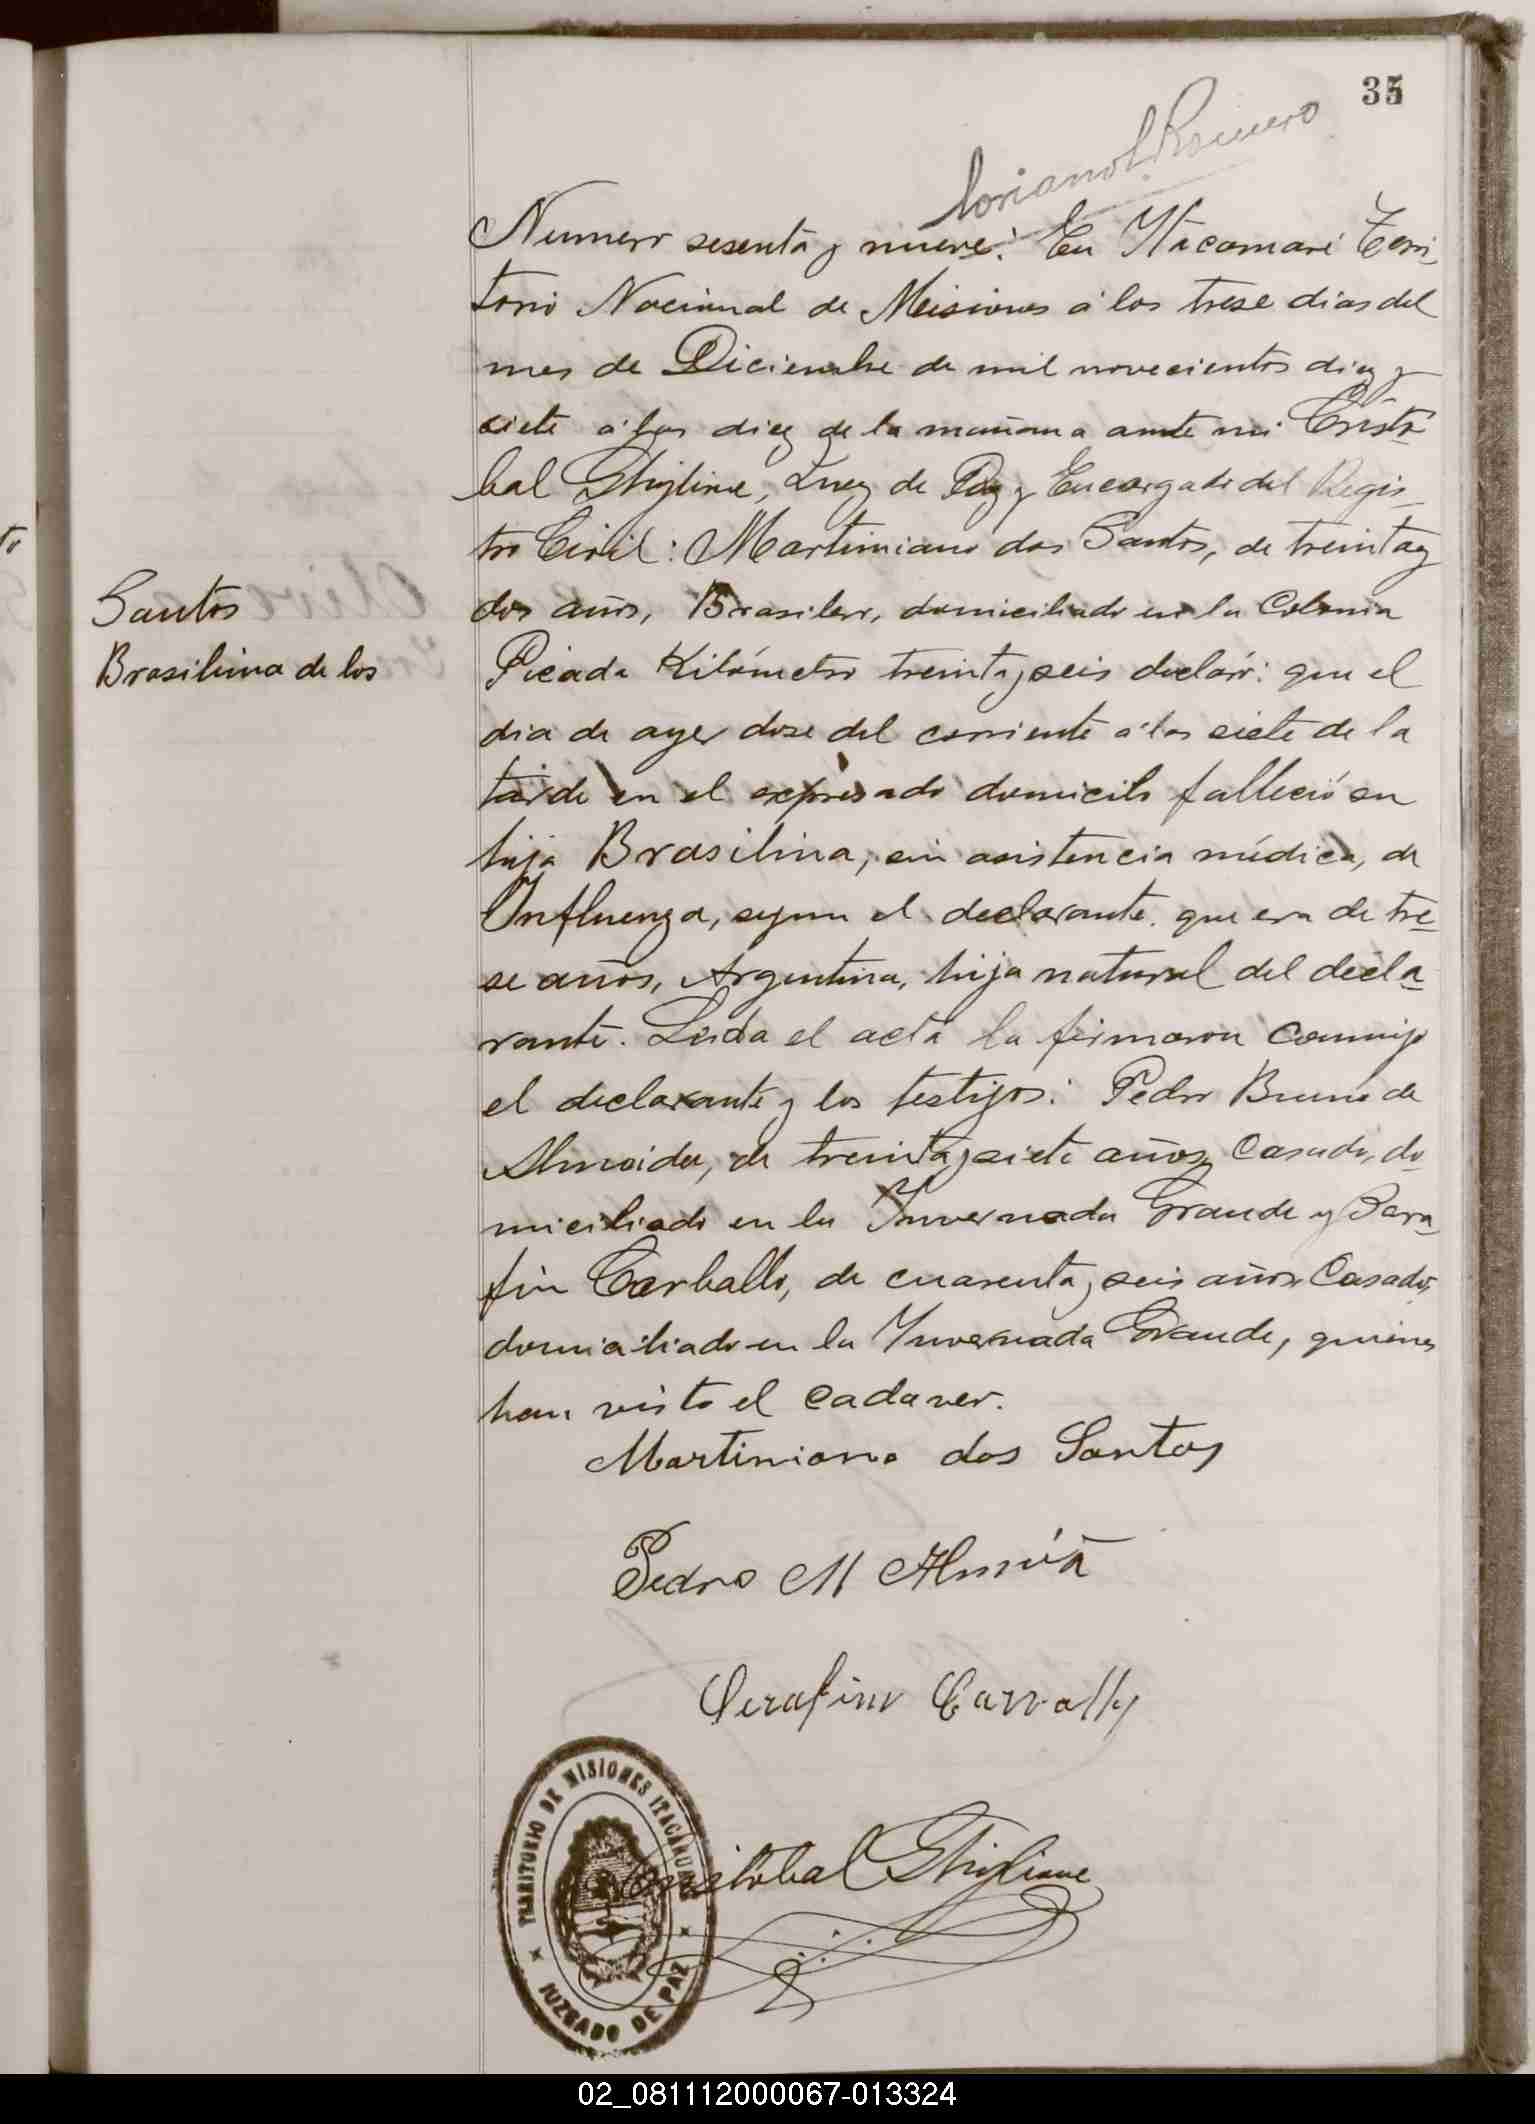 35
Soriano L. Romero
Numero sesenta y nueve: En Itacaruaré Terri-
torio Nacional de Misiones á los trese dias del
mes de Diciembre de mil novecientos diez y
siete á las diez de la mañana ante mi Cristo-
bal Ghiglione, Juez de Paz y Encargado del Regis-
tro Civil: Martiniano dos Santos, de treinta y
dos años, Brasilero, domiciliado en la Colonia
Picada Kilómetro treinta y seis declaró: que el
dia de ayer dose del corriente á las siete de la
tarde en el expresado domicilo falleció su
hija Brasilina, sin asistencia médica, de
Influenza, segun el declarante, que era de tre-
se años, Argentina, hija natural del decla-
rante. Leida el acta la firmaron conmigo
el declarante y los testigos: Pedro Bruno de
Almeida, de treinta y siete años, Casado, do-
miciliado en la Invernada Grande y Sera-
fin Carballo, de cuarenta y seis años, Casado,
domiciliado en la Invernada Grande, quienes
han visto el cadaver.
Santos
Brasilina de los
Martiniano dos Santos
Pedro M
Serafin
Cristobal Ghiglione
TERRITORIO DE MISIONES ITACARUARE
JUZGADO DE PAZ
02_081112000067-013324